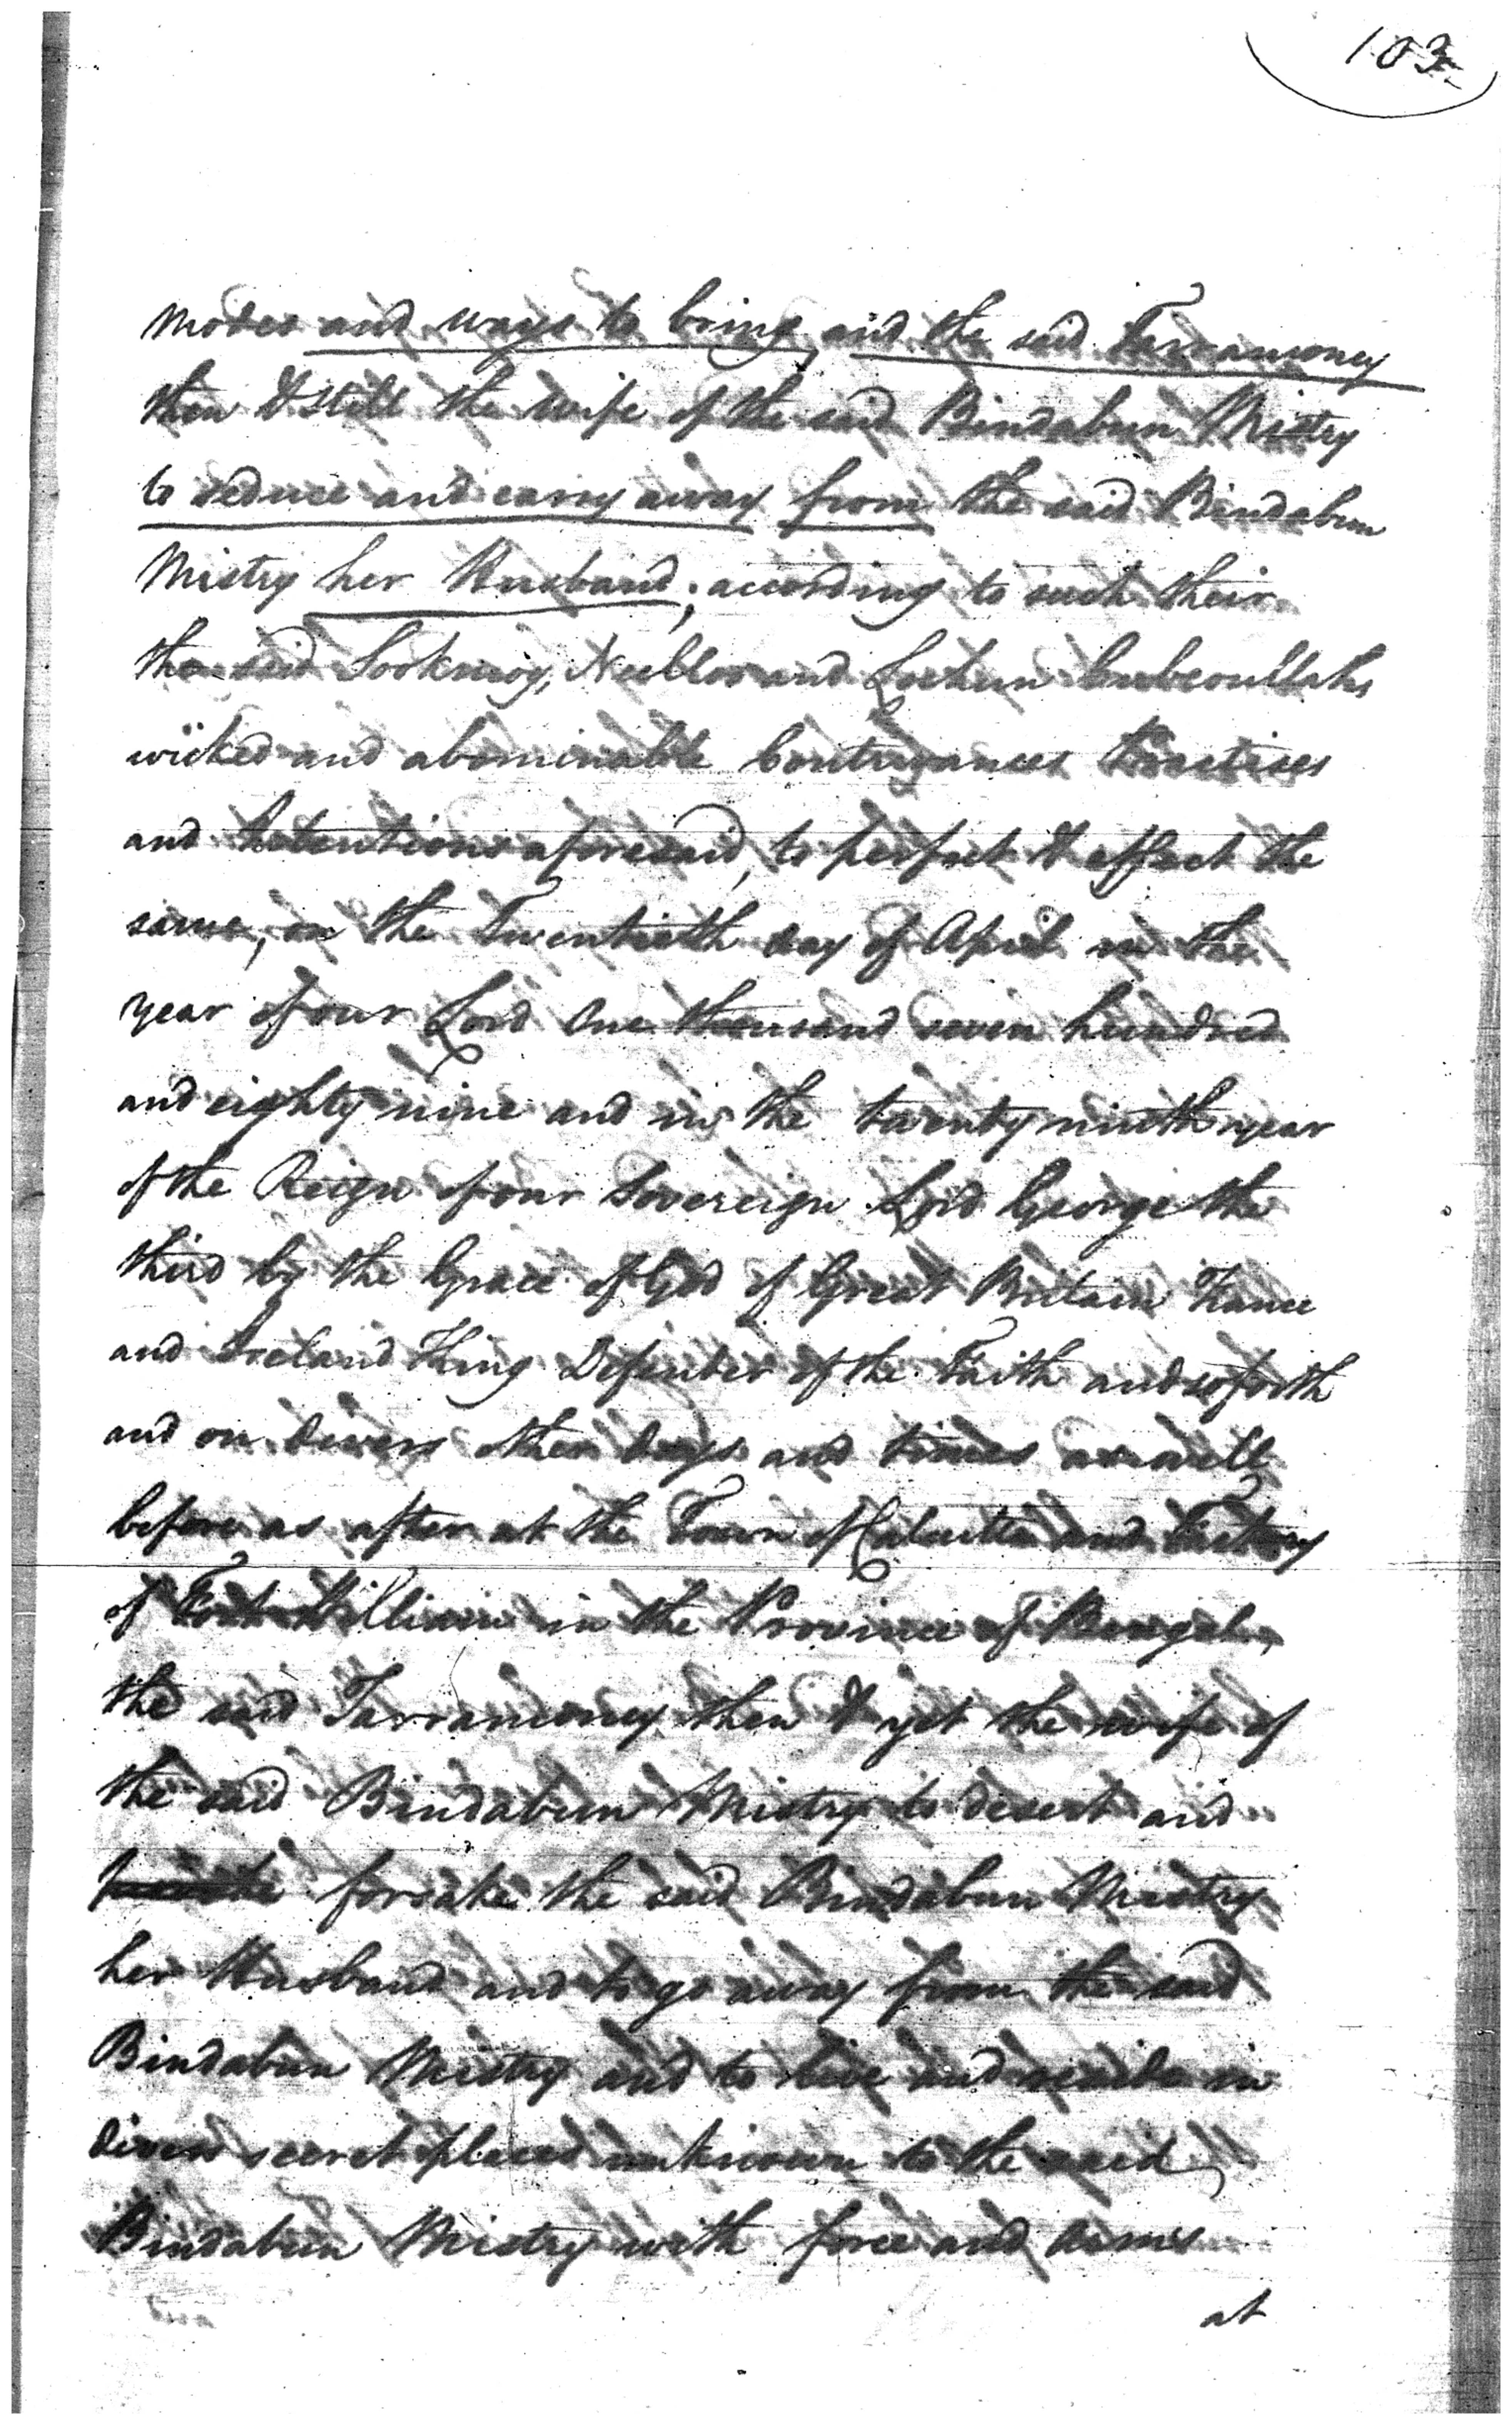 103
modes and ways to bring, and the said Tarramoney
then & still the wife of the said Bindabun Mistry
to seduce and carry away from the said Bindabun
Mistry her Husband; according to such their
the said Sookmoy, Neelloo and Lochun
wicked and abominable Contrivances Practises
and Intentions aforesaid, to perfect & effect the
same, on the Twentieth day of April in the
year of our Lord One thousand seven hundred
and eighty nine and in the twenty ninth year
of the Reign of our Sovereign Lord George the
third by the Grace of God of Great Britain France
and Ireland King Defender of the Faith and so forth
and on divers other days and times as well
before as after at the Town of Calcutta and Factory
of Fort William in the Province of Bengal,
the said Tarramoney then & yet the wife of
the said Bindabun Mistry to desert and
forsake the said Bindabun Mistry
her Husband and to go away from the said
Bindabun Mistry and to live and reside in
divers secret places unknown to the said,
Bindabun Mistry with force and arms
at